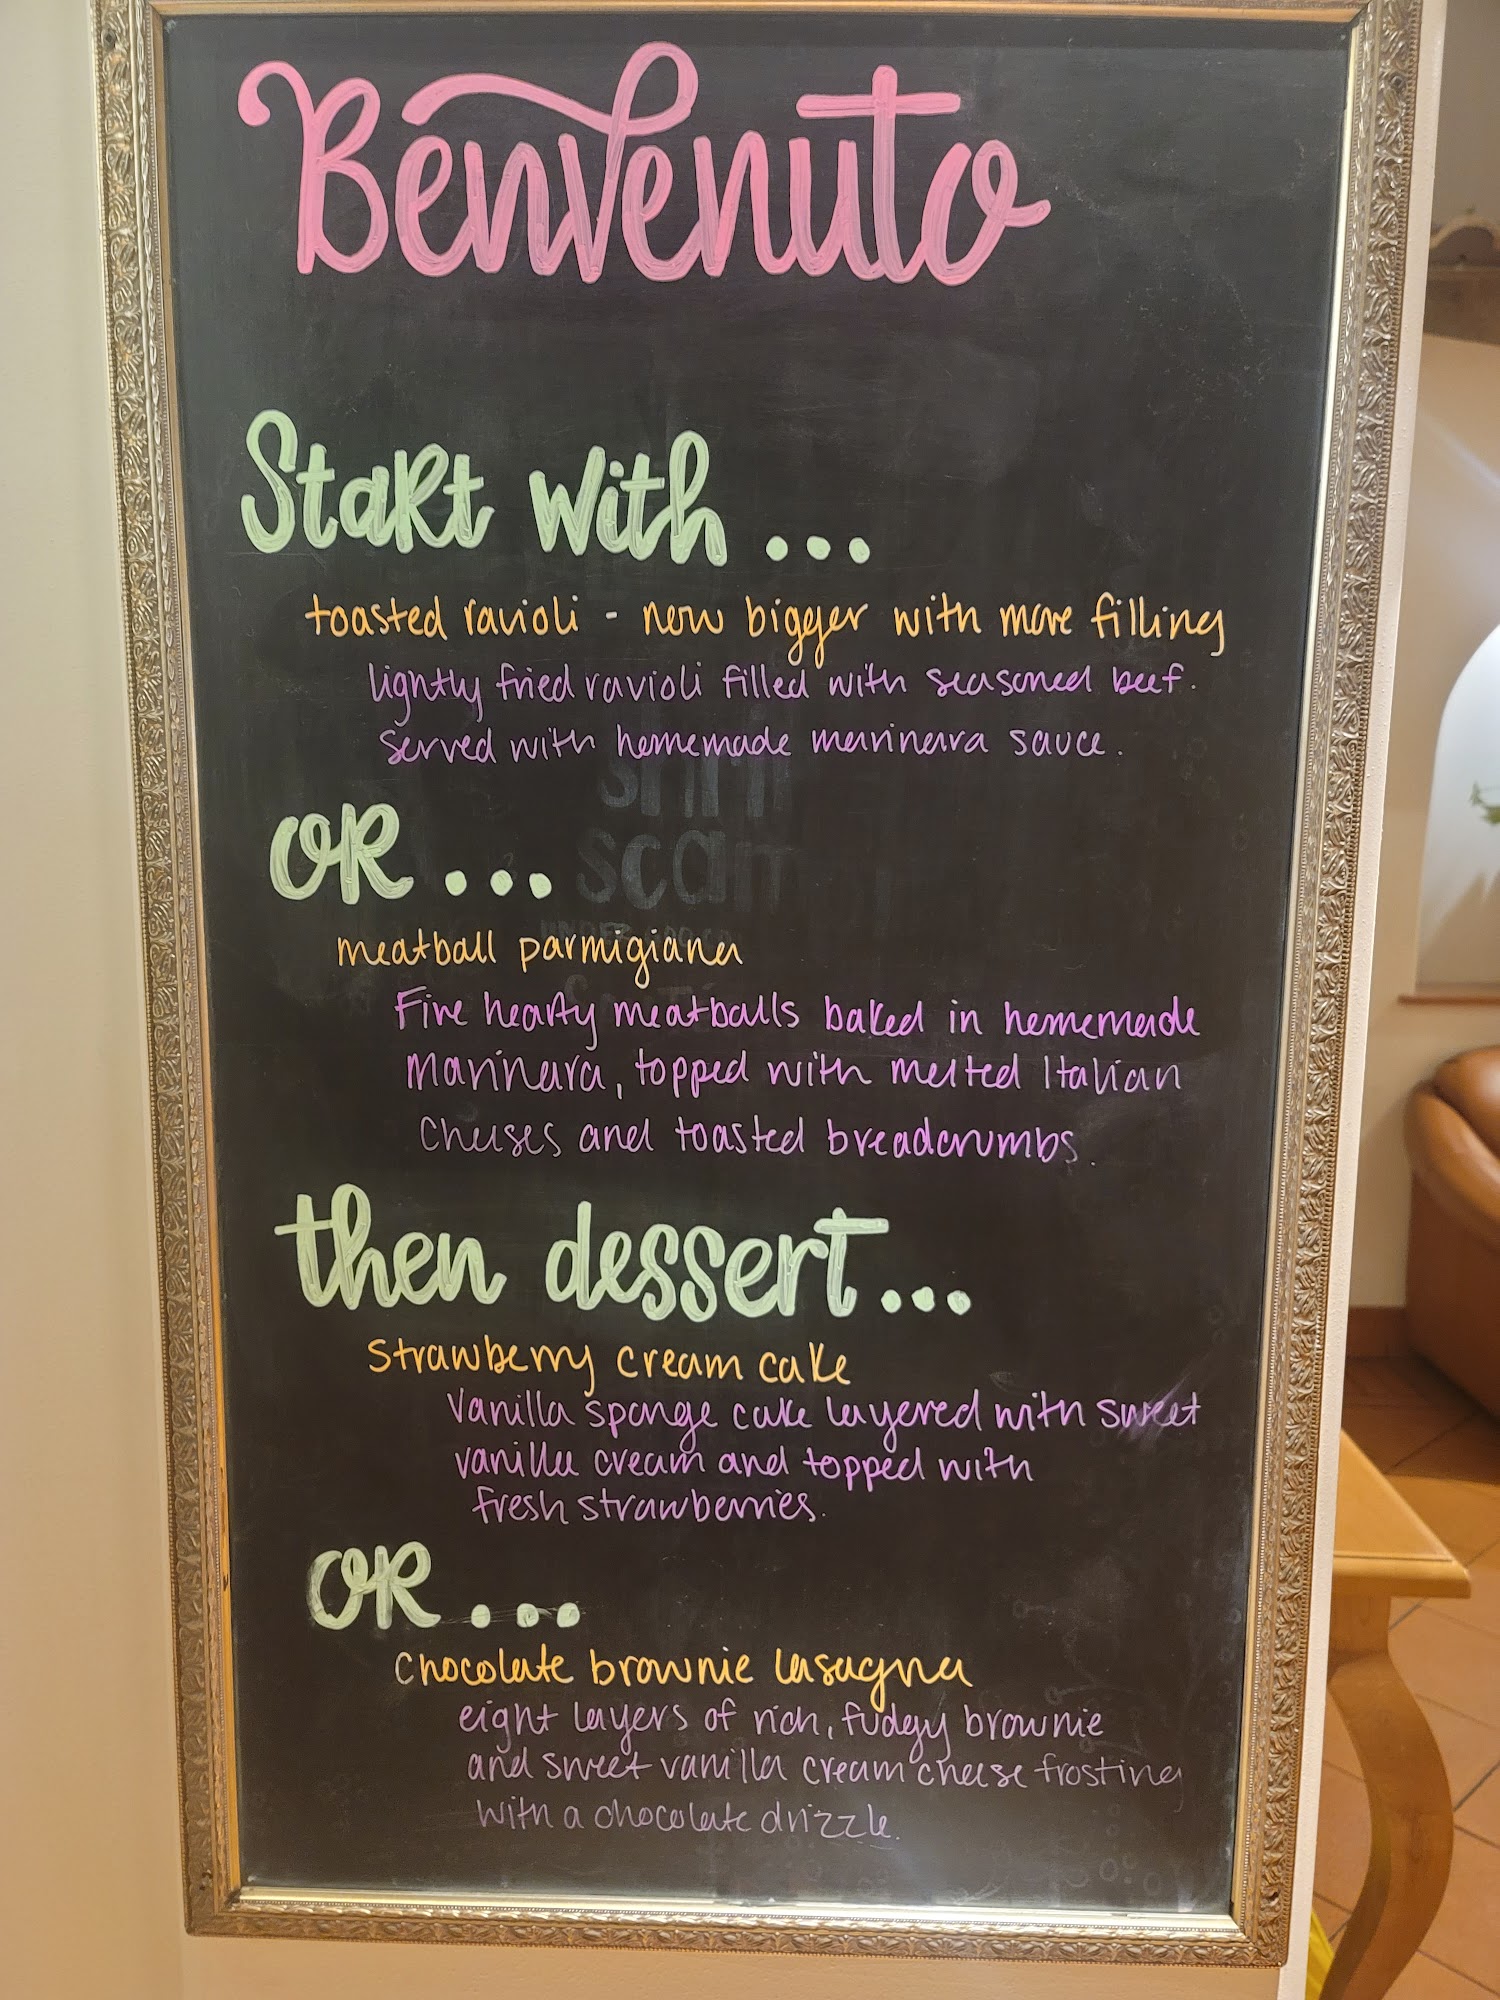 Benvenuto
Start with...
toasted ravioli - now bigger with more filling
lightly fried ravioli filled with seasoned beef.
served with homemade marinara sauce.
OR...
meatball parmigiana
Five hearty meatballs baked in homemade
marinara, topped with melted Italian
cheeses and toasted breadcrumbs.
then dessert...
strawberry cream cake
vanilla sponge cake layered with sweet
vanilla cream and topped with
fresh strawberries.
OR...
chocolate brownie lasagna
eight layers of rich, fudgy brownie
and sweet vanilla cream cheese frosting
with a chocolate drizzle.